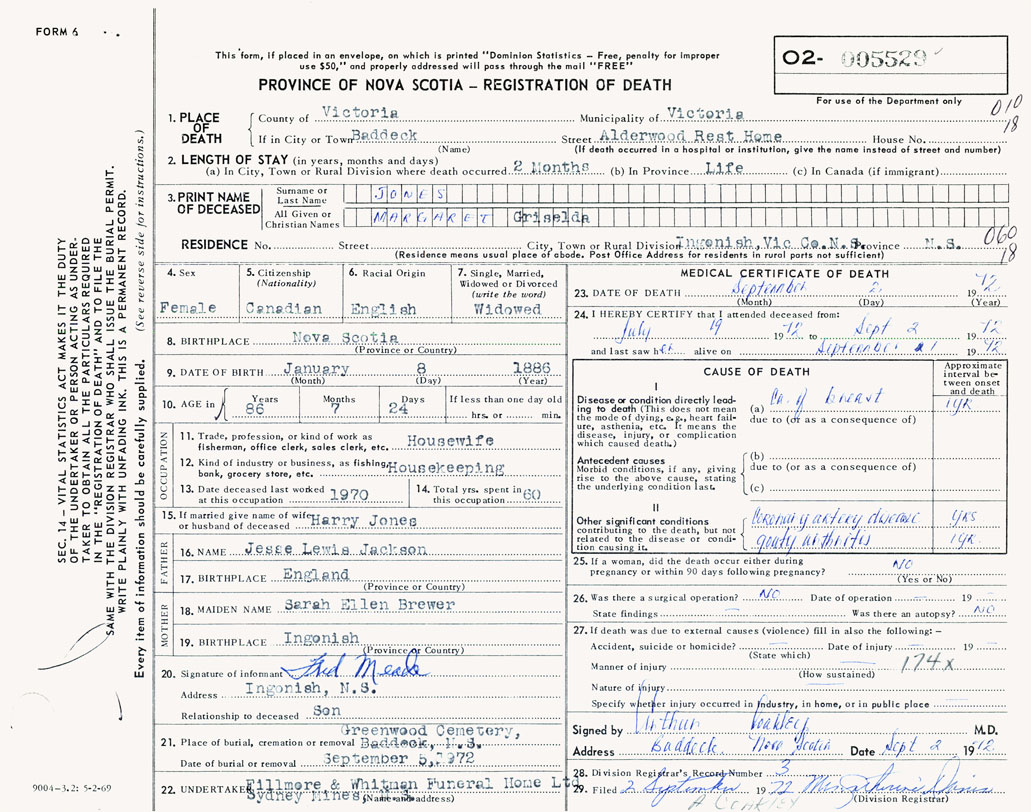 FORM 6
This form, if placed in an envelope, on which is printed "Dominion Statistics – Free, penalty for improper
use $50," and properly addressed will pass through the mail "FREE"
PROVINCE OF NOVA SCOTIA – REGISTRATION OF DEATH
O2- 005529
For use of the Department only
010
18
1. PLACE OF DEATH
County of Victoria Municipality of Victoria
If in City or Town Baddeck Street Alderwood Rest Home House No.
(Name) (If death occurred in a hospital or institution, give the name instead of street and number)
2. LENGTH OF STAY (in years, months and days)
(a) In City, Town or Rural Division where death occurred 2 Months (b) In Province Life (c) In Canada (if immigrant)
3. PRINT NAME OF DECEASED
Surname or Last Name JONES
All Given or Christian Names MARGARET Griselda
060
18
RESIDENCE No. Street City, Town or Rural Division Ingonish, Vic Co. N.S. Province N.S.
(Residence means usual place of abode. Post Office Address for residents in rural parts not sufficient)
4. Sex Female
5. Citizenship (Nationality) Canadian
6. Racial Origin English
7. Single, Married, Widowed or Divorced (write the word) Widowed
8. BIRTHPLACE Nova Scotia
(Province or Country)
9. DATE OF BIRTH January 8 1886
(Month) (Day) (Year)
10. AGE in Years 86 Months 7 Days 24 If less than one day old hrs. or min.
OCCUPATION
11. Trade, profession, or kind of work as
fishermon, office clerk, sales clerk, etc. Housewife
12. Kind of industry or business, as fishing,
bank, grocery store, etc. Housekeeping
13. Date deceased last worked
at this occupation 1970
14. Total yrs. spent in
this occupation 60
15. If married give name of wife
or husband of deceased Harry Jones
FATHER
16. NAME Jesse Lewis Jackson
17. BIRTHPLACE England
(Province or Country)
MOTHER
18. MAIDEN NAME Sarah Ellen Brewer
19. BIRTHPLACE Ingonish
(Province or Country)
20. Signature of informant Fred Meade
Address Ingonish, N.S.
Relationship to deceased Son
Greenwood Cemetery,
21. Place of burial, cremation or removal Baddeck, N.S.
Date of burial or removal September 5, 1972
22. UNDERTAKER Fillmore & Whitman Funeral Home Ltd
Sydney Mines, N.S.
(Name and address)
MEDICAL CERTIFICATE OF DEATH
23. DATE OF DEATH September 2 1972
(Month) (Day) (Year)
24. I HEREBY CERTIFY that I attended deceased from:
July 19 1972 to Sept 2 1972
and last saw her alive on September 1 1972
CAUSE OF DEATH
Approximate interval between onset and death
I
Disease or condition directly lead-
ing to death (This does not mean
the mode of dying, e.g., heart fail-
ure, asthenia, etc. It means the
disease, injury, or complication
which caused death.)
(a) Ca. of breast 1 yr
due to (or as a consequence of)
Antecedent causes
Morbid conditions, if any, giving
rise to the above cause, stating
the underlying condition last.
(b)
due to (or as a consequence of)
(c)
II
Other significant conditions
contributing to the death, but not
related to the disease or condi-
tion causing it.
Coronary artery disease yrs
gouty arthritis 1 yr.
25. If a woman, did the death occur either during
pregnancy or within 90 days following pregnancy? NO
(Yes or No)
26. Was there a surgical operation? NO Date of operation – 19 –
State findings – Was there an autopsy? NO
27. If death was due to external causes (violence) fill in also the following: –
Accident, suicide or homicide? – Date of injury – 19 –
(State which)
Manner of injury 174x
(How sustained)
Nature of injury
Specify whether injury occurred in industry, in home, or in public place
Signed by Arthur M.D.
Address Baddeck Nova Scotia Date Sept 2 1972
28. Division Registrar's Record Number 3
29. Filed 2 September 1972
(Division Registrar)
SEC. 14 – VITAL STATISTICS ACT MAKES IT THE DUTY
OF THE UNDERTAKER OR PERSON ACTING AS UNDER-
TAKER TO OBTAIN ALL THE PARTICULARS REQUIRED
IN THE "REGISTRATION OF DEATH" AND TO FILE THE
SAME WITH THE DIVISION REGISTRAR WHO SHALL ISSUE THE BURIAL PERMIT.
WRITE PLAINLY WITH UNFADING INK. THIS IS A PERMANENT RECORD.
Every item of information should be carefully supplied. (See reverse side for instructions.)
9004-3.2: 5-2-69